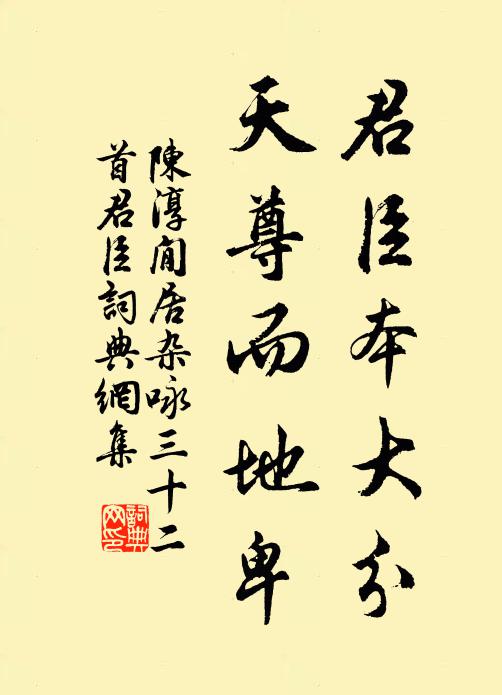 君臣本大分
天尊而地卑
陳淳閒居杂咏三十二
首君臣詞典網集
詞典
网印